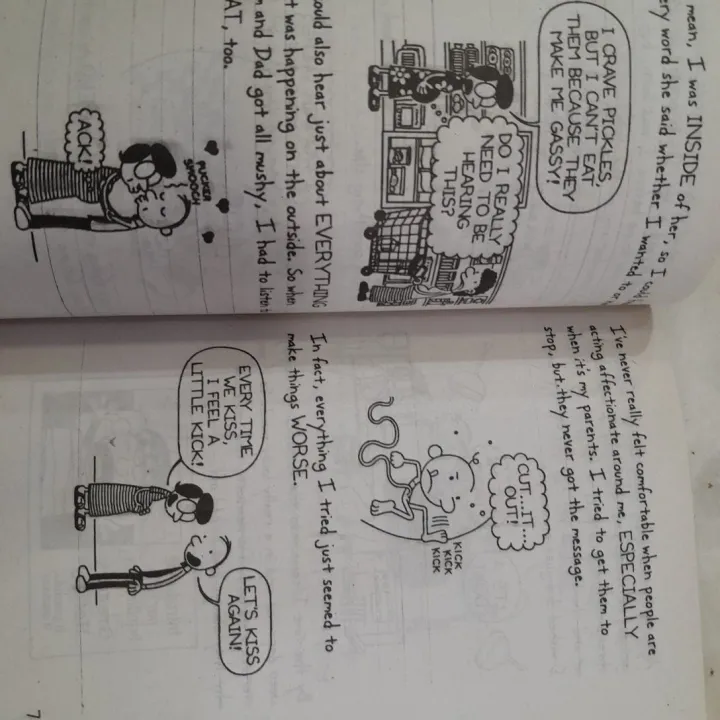 mean, I was INSIDE of her, so I
ery word she said whether I wanted to
I CRAVE PICKLES,
BUT I CAN'T EAT
THEM BECAUSE THEY
MAKE ME GASSY!
DO I REALLY
NEED TO BE
HEARING
THIS?
ould also hear just about EVERYTHING
t was happening on the outside. So when
m and Dad got all mushy, I had to listen
AT, too.
PUCKER
SMOOCH
ACK!
I've never really felt comfortable when people are
acting affectionate around me, ESPECIALLY
when it's my parents. I tried to get them to
stop, but they never got the message.
CUT...IT...
OUT!
KICK
KICK
KICK
In fact, everything I tried just seemed to
make things WORSE.
EVERY TIME
WE KISS,
I FEEL A
LITTLE KICK!
LET'S KISS
AGAIN!
7